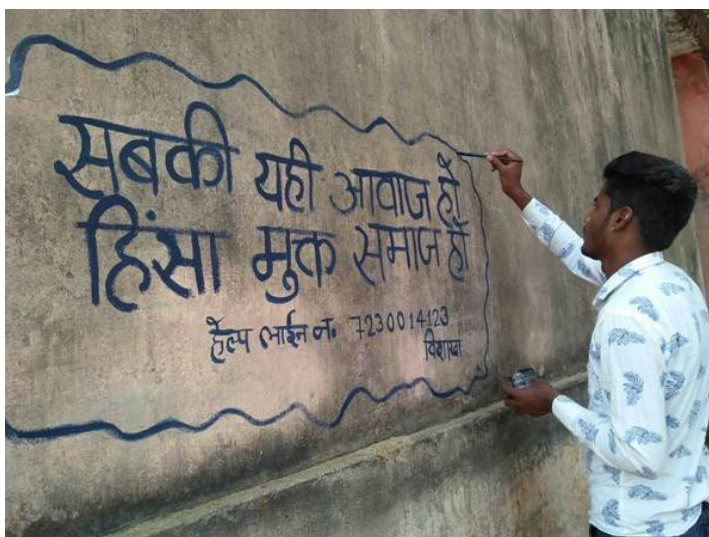 सबकी यही आवाज हो
हिंसा मुक्त समाज हो
हेल्प लाईन न. 7230014123
विशाखा